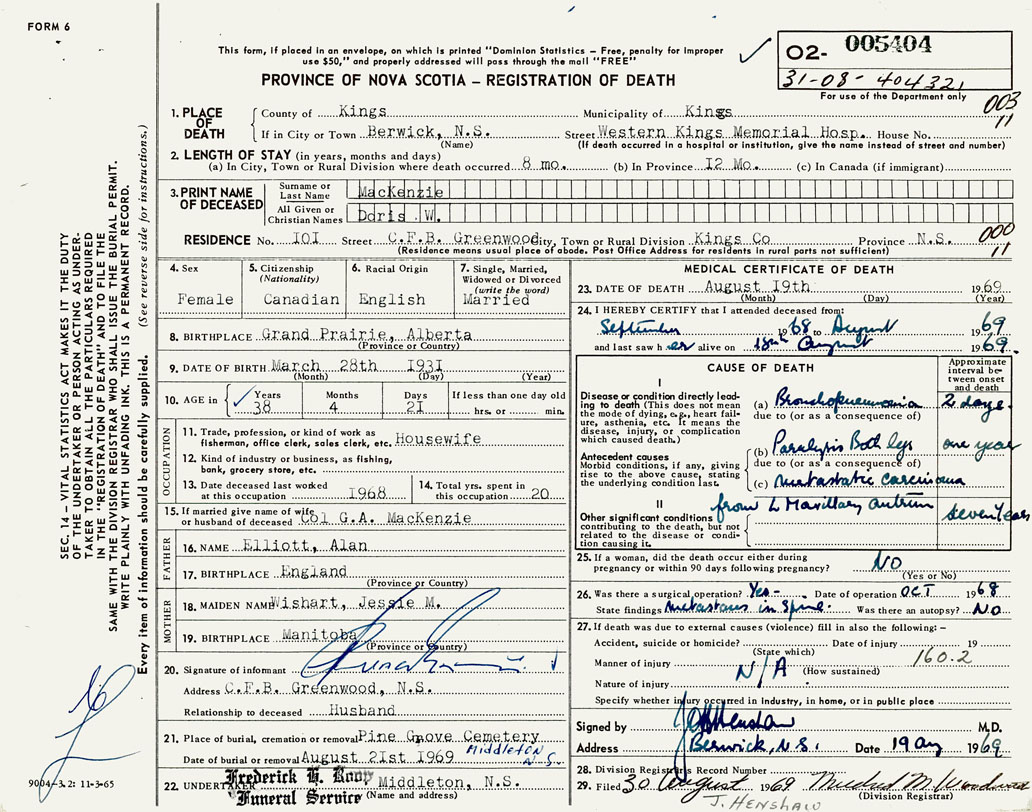 FORM 6
This form, if placed in an envelope, on which is printed "Dominion Statistics – Free, penalty for improper
use $50," and properly addressed will pass through the mail "FREE"
PROVINCE OF NOVA SCOTIA – REGISTRATION OF DEATH
02- 005404
31-08- 404321
For use of the Department only
003
11
1. PLACE OF DEATH
County of Kings Municipality of Kings
If in City or Town Berwick, N.S. Street Western Kings Memorial Hosp. House No.
(Name) (If death occurred in a hospital or institution, give the name instead of street and number)
2. LENGTH OF STAY (in years, months and days)
(a) In City, Town or Rural Division where death occurred 8 mo. (b) In Province I2 Mo. (c) In Canada (if immigrant)
3. PRINT NAME OF DECEASED
Surname or Last Name MacKenzie
All Given or Christian Names Doris W.
RESIDENCE No. IOI Street C.F.B. Greenwood City, Town or Rural Division Kings Co Province N.S.
(Residence means usual place of abode. Post Office Address for residents in rural parts not sufficient)
000
11
4. Sex
Female
5. Citizenship (Nationality)
Canadian
6. Racial Origin
English
7. Single, Married, Widowed or Divorced (write the word)
Married
8. BIRTHPLACE Grand Prairie, Alberta
(Province or Country)
9. DATE OF BIRTH March 28th I93I
(Month) (Day) (Year)
10. AGE in Years Months Days If less than one day old
38 4 2I hrs. or min.
OCCUPATION
11. Trade, profession, or kind of work as
fisherman, office clerk, sales clerk, etc. Housewife
12. Kind of industry or business, as fishing,
bank, grocery store, etc.
13. Date deceased last worked
at this occupation I968
14. Total yrs. spent in
this occupation 20
15. If married give name of wife
or husband of deceased Col G.A. MacKenzie
FATHER
16. NAME Elliott, Alan
17. BIRTHPLACE England
(Province or Country)
MOTHER
18. MAIDEN NAME Wishart, Jessie M.
19. BIRTHPLACE Manitoba
(Province or Country)
20. Signature of informant
Address C.F.B. Greenwood, N.S.
Relationship to deceased Husband
21. Place of burial, cremation or removal Pine Grove Cemetery
Middleton N.S.
Date of burial or removal August 2Ist I969
22. UNDERTAKER Frederick H. Roop Funeral Service Middleton, N.S.
(Name and address)
MEDICAL CERTIFICATE OF DEATH
23. DATE OF DEATH August I9th 1969
(Month) (Day) (Year)
24. I HEREBY CERTIFY that I attended deceased from:
September 1968 to August 1969
and last saw her alive on 18th August 1969.
CAUSE OF DEATH
Approximate interval between onset and death
I
Disease or condition directly leading to death (This does not
mean the mode of dying, e.g., heart failure, asthenia, etc. It means the
disease, injury, or complication
which caused death.)
(a) Bronchopneumonia 2 days.
due to (or as a consequence of)
Antecedent causes
Morbid conditions, if any, giving
rise to the above cause, stating
the underlying condition last.
(b) Paralysis Both legs one year
due to (or as a consequence of)
(c) metastatic carcinoma
from L Maxillary antrum seven Years
II
Other significant conditions
contributing to the death, but not
related to the disease or condition causing it.
25. If a woman, did the death occur either during
pregnancy or within 90 days following pregnancy? NO
(Yes or No)
26. Was there a surgical operation? Yes- Date of operation OCT 1968
State findings Metastases in Spine. Was there an autopsy? NO
27. If death was due to external causes (violence) fill in also the following: –
Accident, suicide or homicide? Date of injury 19
(State which)
160.2
Manner of injury
N/A (How sustained)
Nature of injury
Specify whether injury occurred in industry, in home, or in public place
Signed by J Henshaw M.D.
Address Berwick, N.S. Date 19 Aug 1969
28. Division Registrar's Record Number
29. Filed 30 August 1969 Mildred M.
(Division Registrar)
J. HENSHAW
SEC. 14 – VITAL STATISTICS ACT MAKES IT THE DUTY
OF THE UNDERTAKER OR PERSON ACTING AS UNDER-
TAKER TO OBTAIN ALL THE PARTICULARS REQUIRED
IN THE "REGISTRATION OF DEATH" AND TO FILE THE
SAME WITH THE DIVISION REGISTRAR WHO SHALL ISSUE THE BURIAL PERMIT.
WRITE PLAINLY WITH UNFADING INK. THIS IS A PERMANENT RECORD.
Every item of information should be carefully supplied. (See reverse side for instructions.)
9004-3.2: 11-3-65